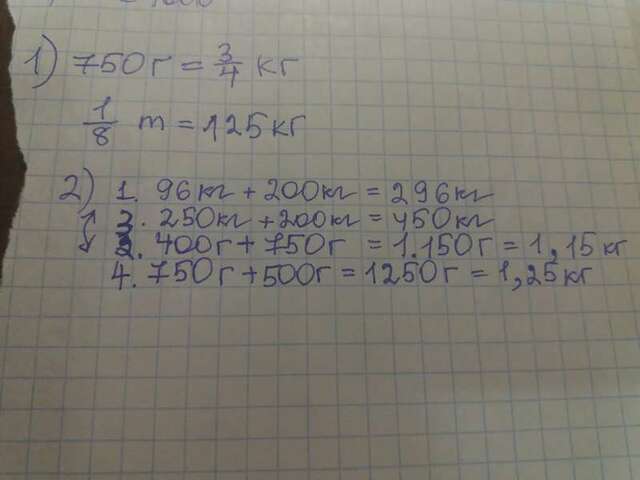 1) 750г = 3/4 кг
1/8 т = 125 кг
2) 1. 96кг + 200кг = 296кг
3. 250кг + 200кг = 450кг
2. 400г + 750г = 1.150г = 1,15 кг
4. 750г + 500г = 1250г = 1,25кг